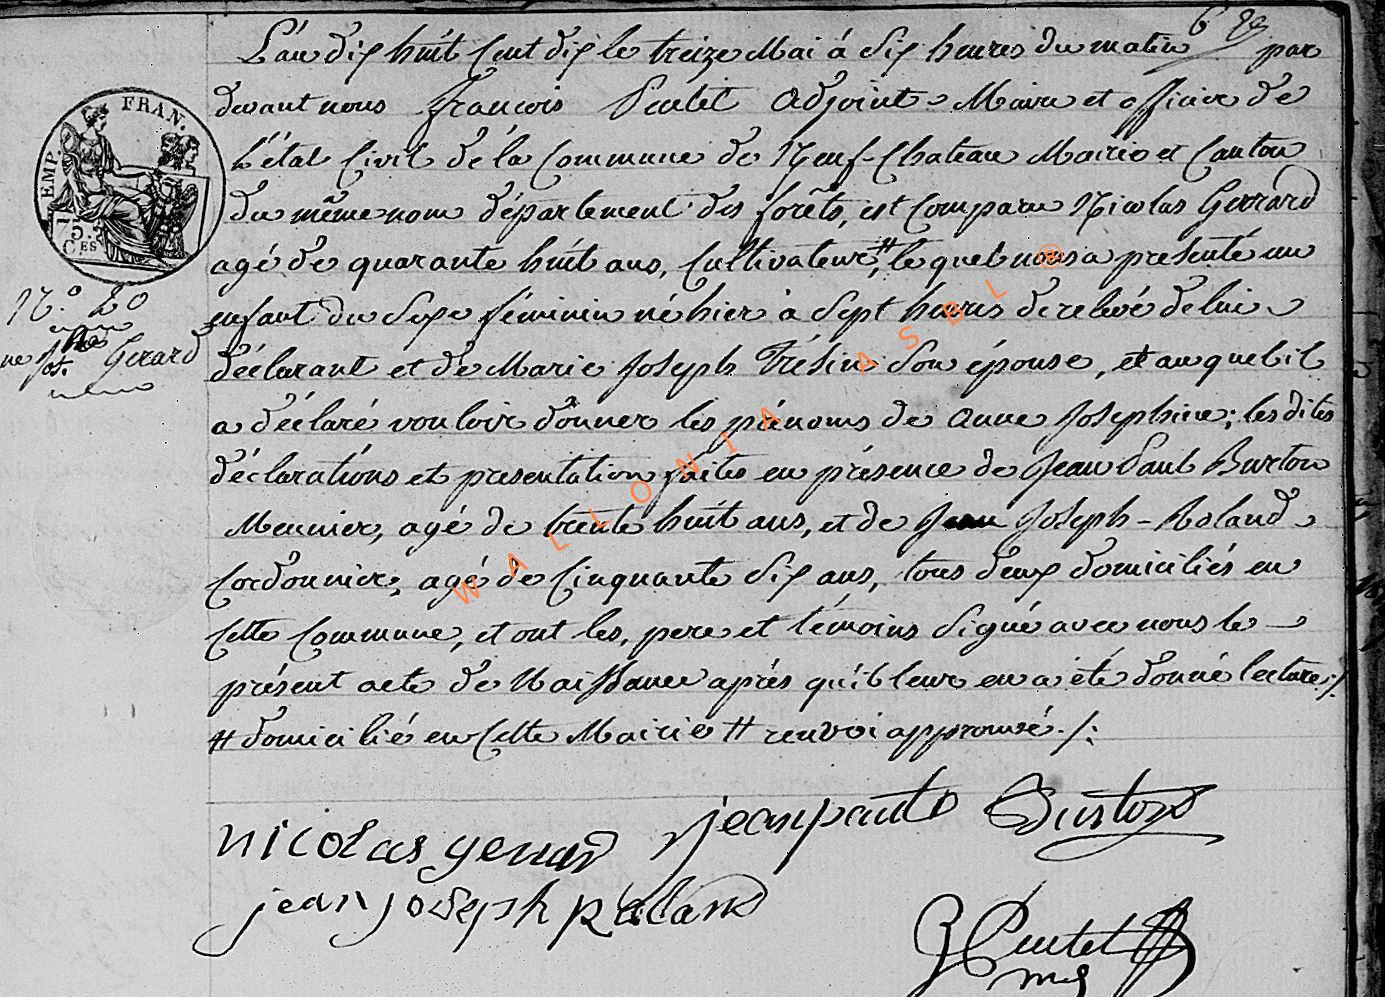 L'an dix huit Cent dix le treize Mai á Six heures du matin par
devant nous françois Pontet Adjoint-Maire et officier de
L'état Civil dé la Commune de Neuf-Chateau Mairie et Canton
du même nom département des forêts, est Comparu Nicolas Gerrard
agé de quarante huit ans, Cultivateur,# le quel nous a presenté un
enfant du Sexe féminin né hier à Sept heures de relevé de lui
déclarant et de Marie Joseph Frésin Son épouse, et au quel il
a déclaré vouloir donner les prénoms de Anne Josephine; les dites
déclarations et presentation faites en présence de Jean Paul Burton
Meunier, agé de trente huit ans, et de Jean Joseph-Roland
Cordonnier, agé de Cinquante Six ans, tous deux domiciliés en
Cette Commune, et ont les, pere et témoins Signé avec nous le
présent acte de Naissance après qu'il leur en a été donné lecture./.
# domicilié en Cette Mairie # renvoi approuvé./:
EMP. FRAN.
75.
CES
N.° 20
ne Jos. Gerard
nicolas gerrard jean paul Burton
jean joseph Roland
WALLONIA ASBL ®